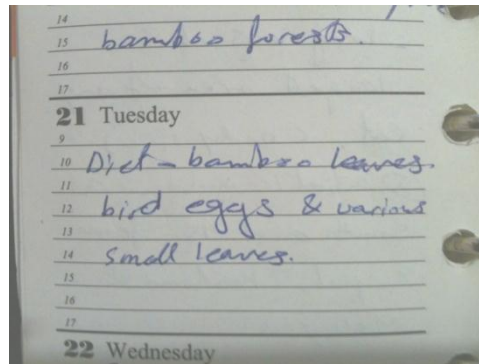 14
15 bamboo forests.
16
17
21 Tuesday
9
10 Diet - bamboo leaves.
11
12 bird eggs & various
13
14 small leaves.
15
16
17
22 Wednesday